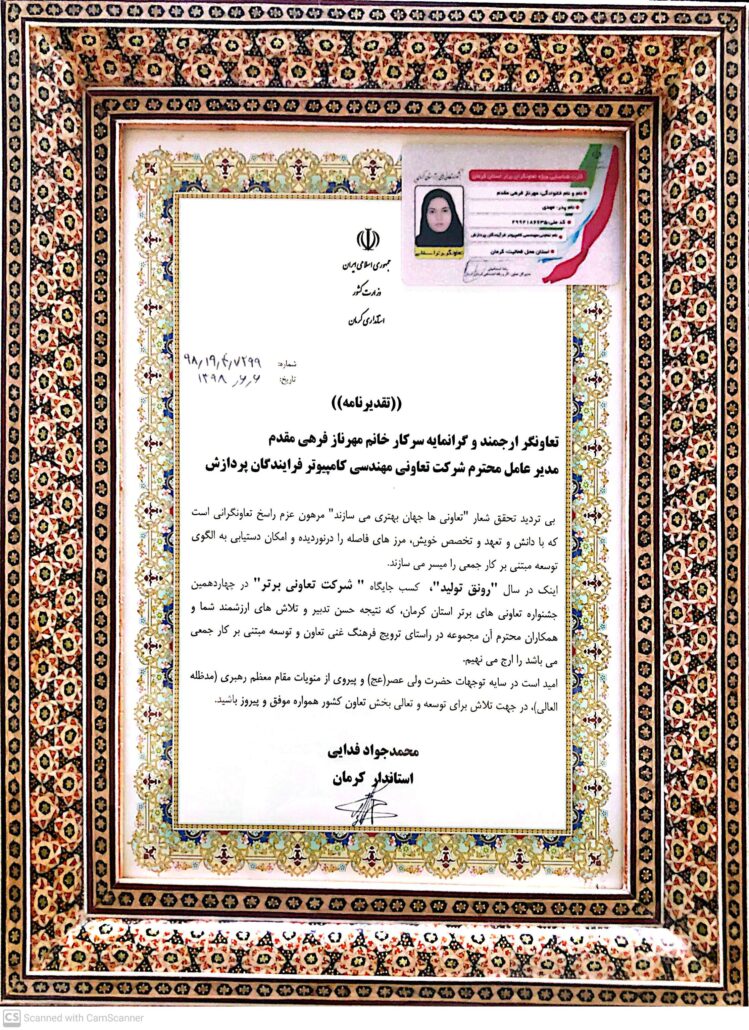 کارت شناسایی ویژه تعاونگران برتر استان کرمان
نام و نام خانوادگی: مهرناز فرهی مقدم
نام پدر: مهدی
کد ملی: ۲۹۹۲۱۸۶۶۳۵
نام تعاونی: مهندسی کامپیوتر فرآیندگان پردازش
استان محل فعالیت: کرمان
جمهوری اسلامی ایران
وزارت کشور
استانداری کرمان
شماره: ۹۸٫۱۹٫۴٫۷۲۹۹
تاریخ: ۱۳۹۸٫۶٫۶
((تقدیرنامه))
تعاونگر ارجمند و گرانمایه سرکار خانم مهرناز فرهی مقدم
مدیر عامل محترم شرکت تعاونی مهندسی کامپیوتر فرایندگان پردازش
بی تردید تحقق شعار "تعاونی ها جهان بهتری می سازند" مرهون عزم راسخ تعاونگرانی است
که با دانش و تعهد و تخصص خویش، مرز های فاصله را درنوردیده و امکان دستیابی به الگوی
توسعه مبتنی بر کار جمعی را میسر می سازند.
اینک در سال "رونق تولید"، کسب جایگاه " شرکت تعاونی برتر" در چهاردهمین
جشنواره تعاونی های برتر استان کرمان، که نتیجه حسن تدبیر و تلاش های ارزشمند شما و
همکاران محترم آن مجموعه در راستای ترویج فرهنگ غنی تعاون و توسعه مبتنی بر کار جمعی
می باشد را ارج می نهیم.
امید است در سایه توجهات حضرت ولی عصر(عج) و پیروی از منویات مقام معظم رهبری (مدظله
العالی)، در جهت تلاش برای توسعه و تعالی بخش تعاون کشور همواره موفق و پیروز باشید.
محمدجواد فدایی
استاندار کرمان
CS Scanned with CamScanner